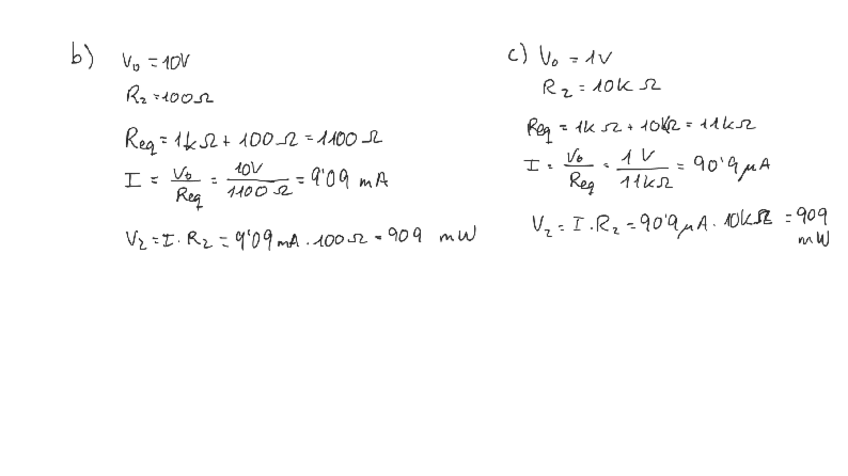 b) V₀ = 10V
R₂ = 100Ω
Req = 1kΩ + 100Ω = 1100Ω
I = V₀/Req = 10V/1100Ω = 9'09 mA
V₂ = I · R₂ = 9'09 mA · 100Ω = 909 mW
c) V₀ = 1V
R₂ = 10kΩ
Req = 1kΩ + 10kΩ = 11kΩ
I = V₀/Req = 1V/11kΩ = 90'9 μA
V₂ = I · R₂ = 90'9 μA · 10kΩ = 909
mW